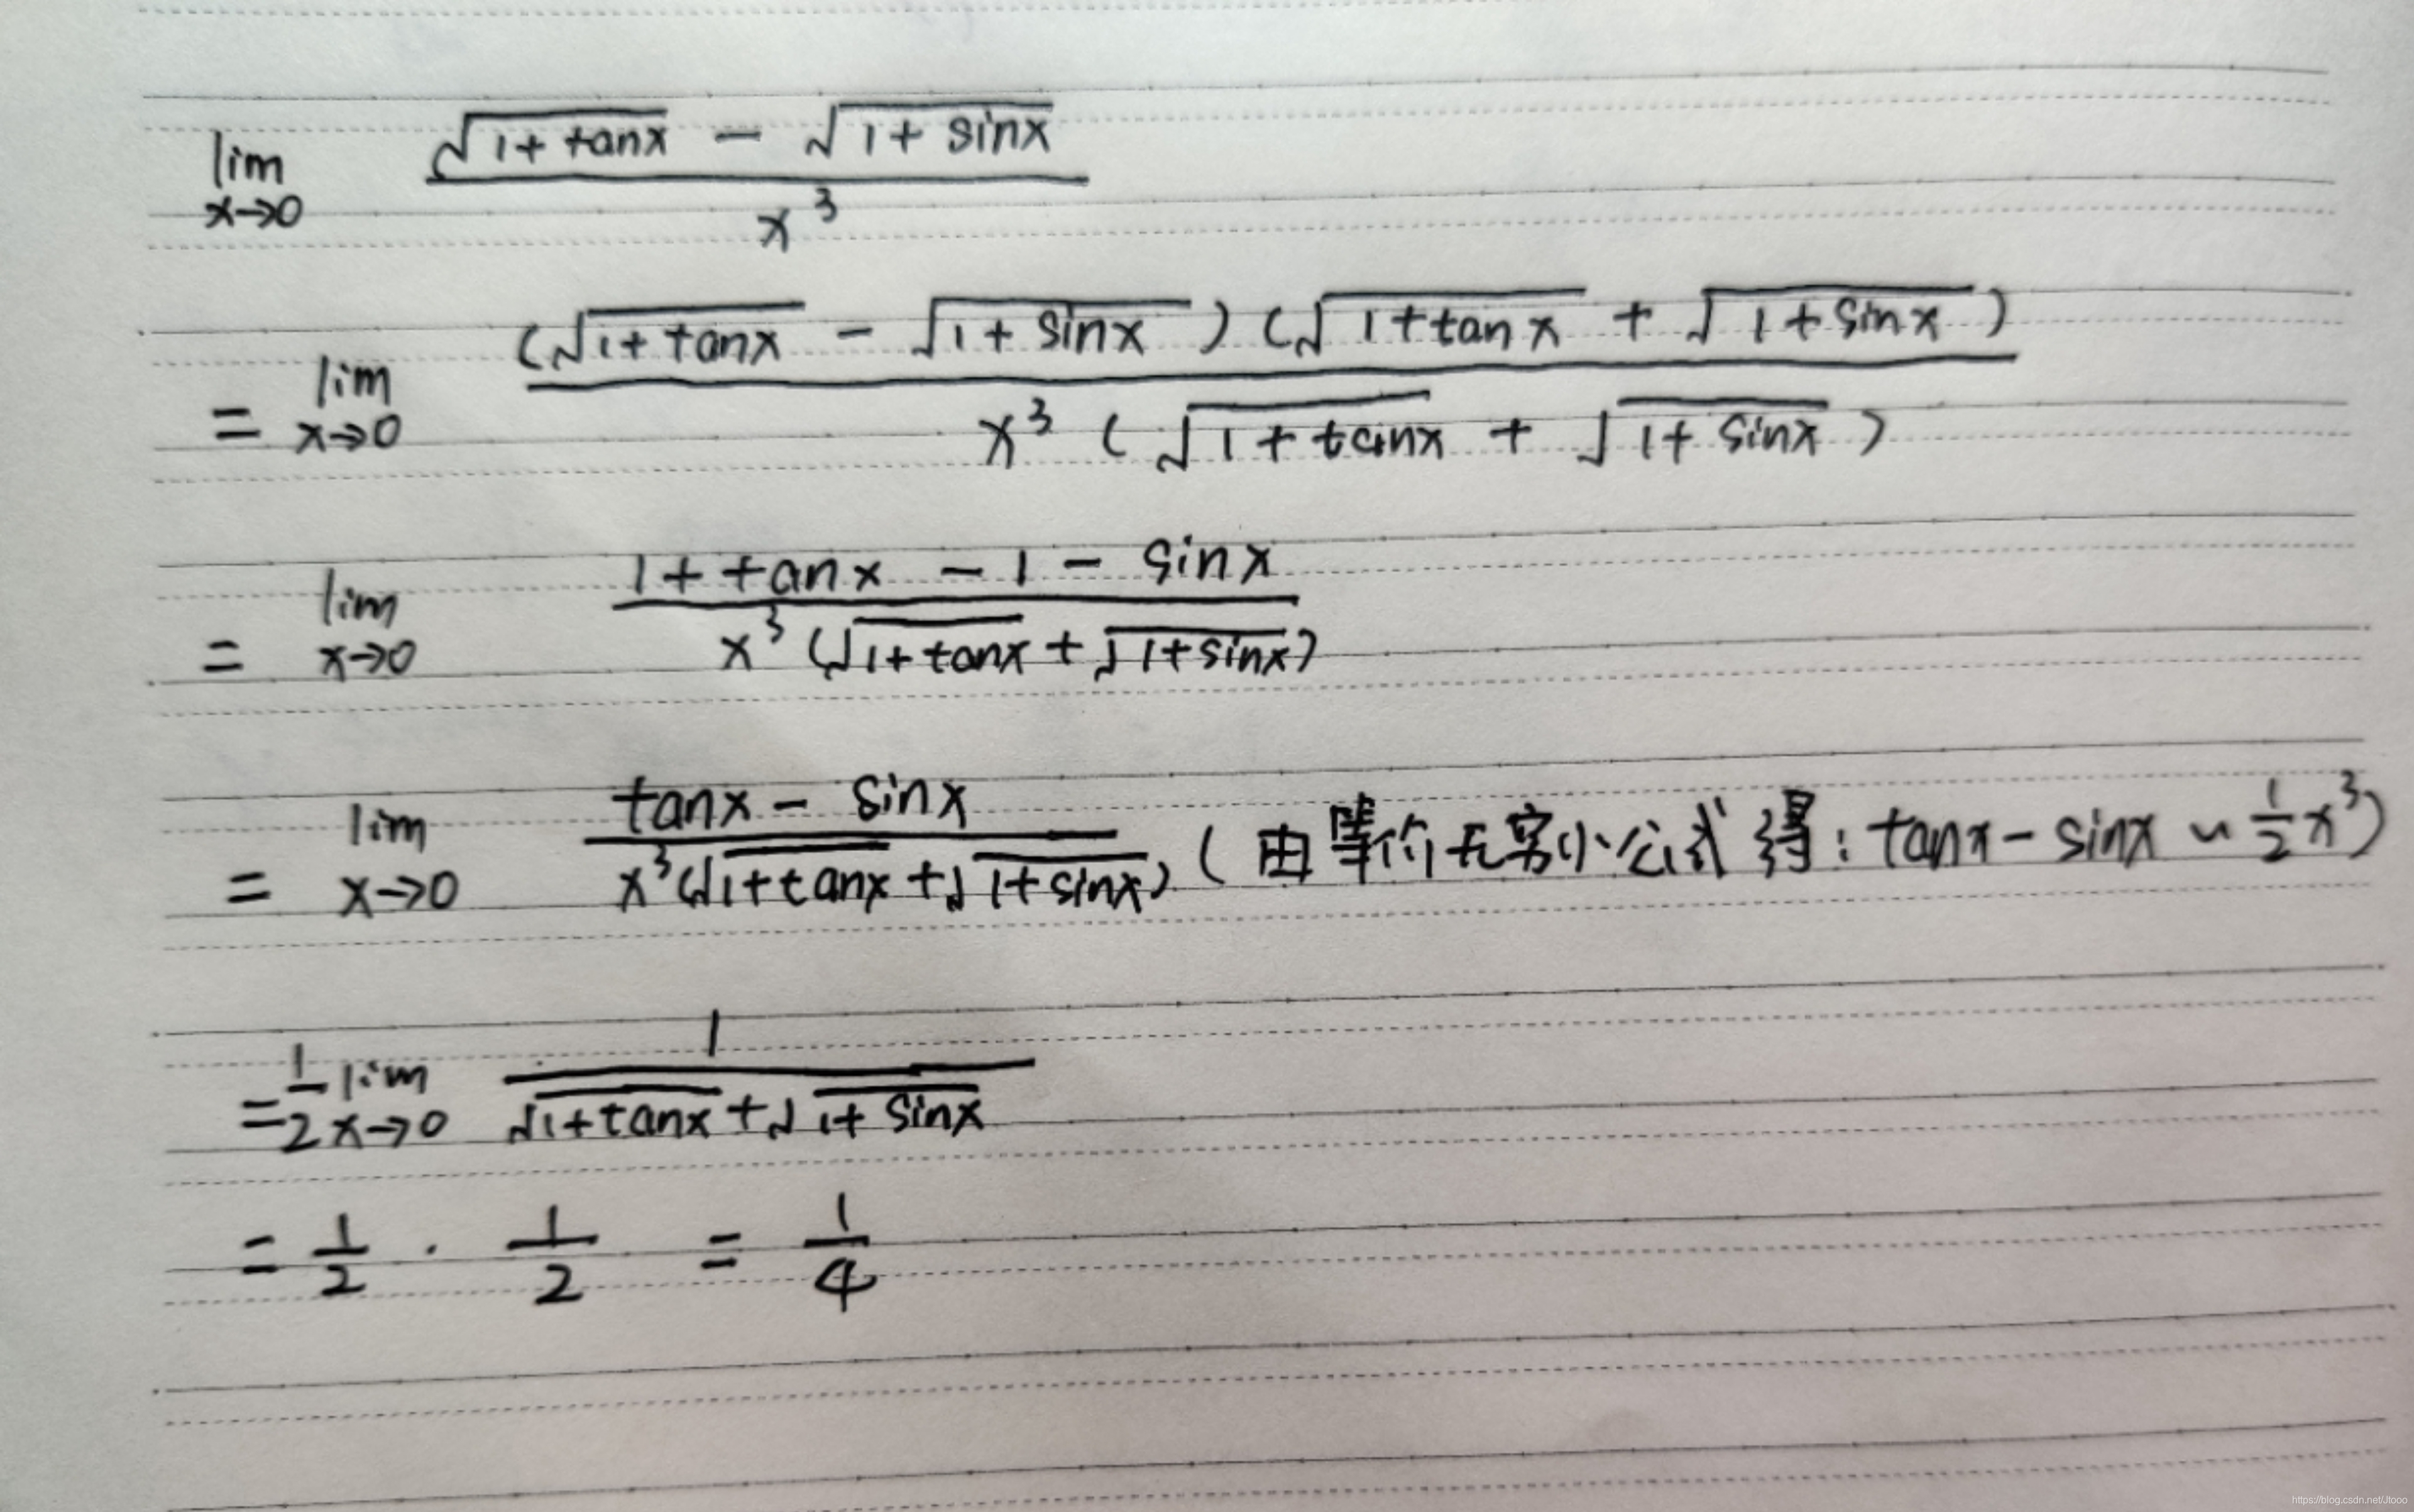 lim x→0 (√(1+tanx) − √(1+sinx)) / x³
= lim x→0 (√(1+tanx) − √(1+sinx))(√(1+tanx) + √(1+sinx)) / x³(√(1+tanx) + √(1+sinx))
= lim x→0 (1+tanx − 1 − sinx) / x³(√(1+tanx) + √(1+sinx))
= lim x→0 (tanx − sinx) / x³(√(1+tanx) + √(1+sinx)) (由等价无穷小公式得: tanx − sinx ~ 1/2 x³)
= 1/2 lim x→0 1 / (√(1+tanx) + √(1+sinx))
= 1/2 · 1/2 = 1/4
https://blog.csdn.net/Jlooo